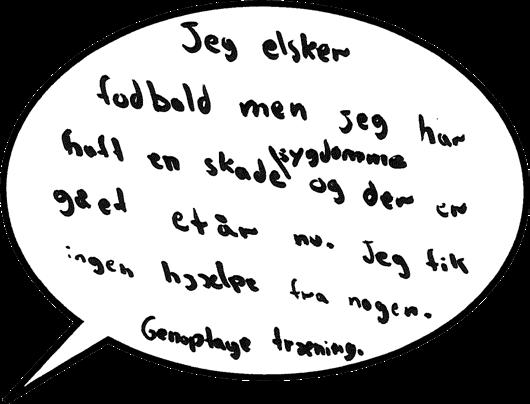 Jeg elsker
fodbold men jeg har
haft en skade\sygdomme og der er
gået et år nu. Jeg fik
ingen hjælpe fra nogen.
Genoptage træning.